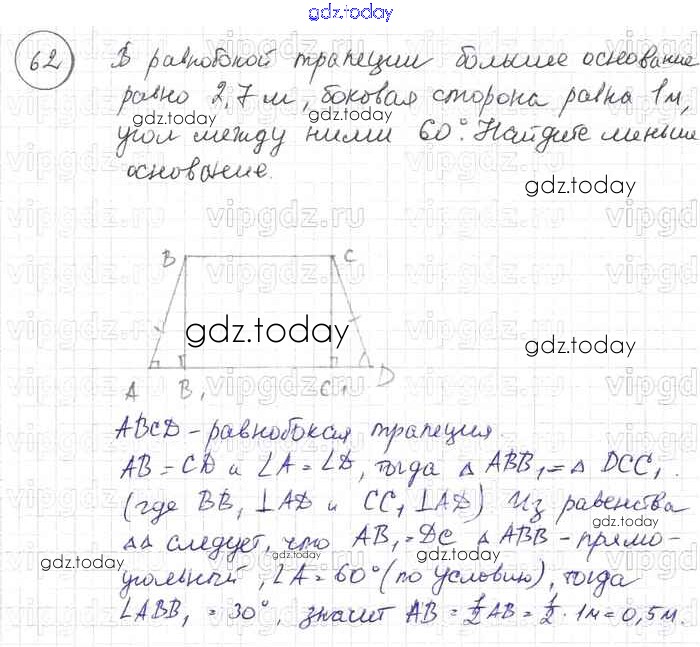 gdz.today
62 В равнобокой трапеции большее основание
равно 2,7 м, боковая сторона равна 1м,
gdz.today gdz.today
угол между ними 60°. Найдите меньше
основание.
gdz.today
vipgdz.ru vipgdz.ru vipgd
B C
gdz.today gdz.today
A B₁ C₁ D
ABCD - равнобокая трапеция.
AB = CD и ∠A = ∠D, тогда △ ABB₁ = △ DCC₁.
(где BB₁ ⊥ AD и CC₁ ⊥ AD) Из равенства
gdz.today
△△ следует, что AB₁ = DC △ ABB - прямо-
gdz.today gdz.today
угольный, ∠A = 60° (по условию), тогда
∠ABB₁ = 30°, значит AB = 1/2 AB = 1/2 · 1м = 0,5 м.